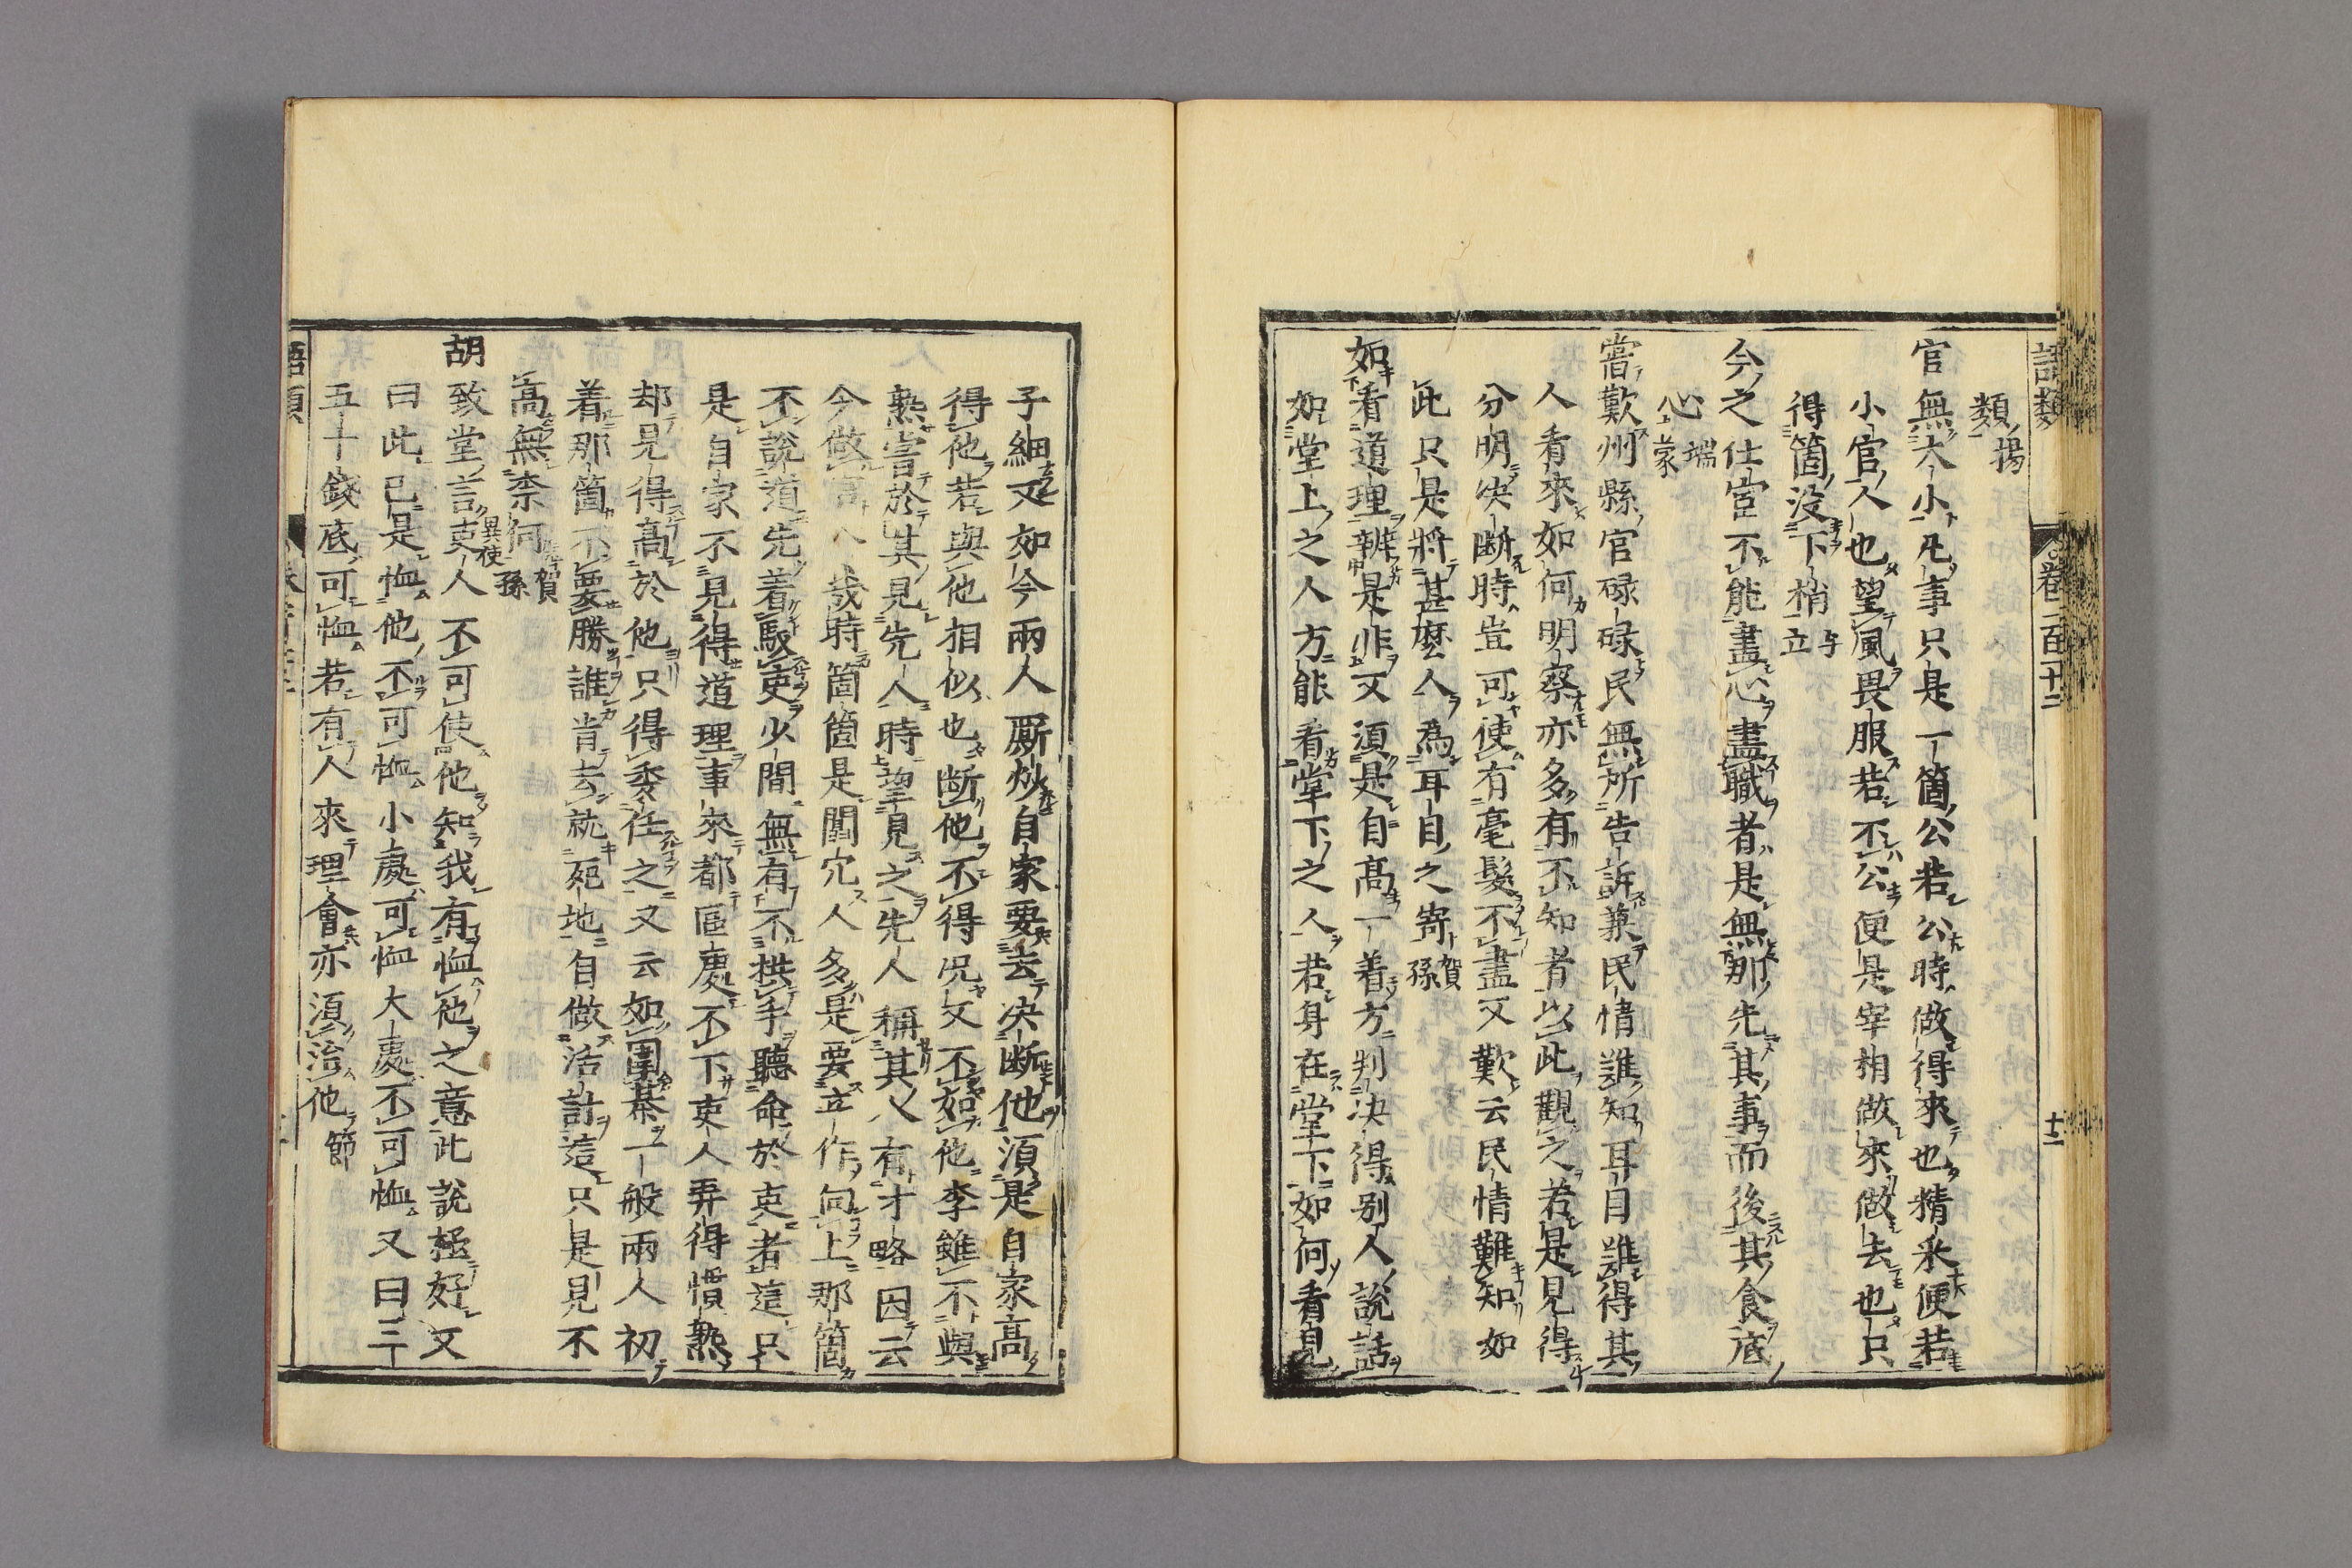 語類
卷一百十二
十二
類揚
官無大小凡事只是一箇公若公時做得來也精采便若
小官人也望風畏服若不公便是宰相做來做去也只
得箇没下梢立与
今之仕宦不能盡心盡職者是無那先其事而後其食底
心端蒙
嘗歎州縣官碌碌民無所告訴兼民情難知耳目難得其
人看來如何明察亦多有不知者以此觀之若是見得
分明决断時豈可使有毫髮不盡又歎云民情難知如
此只是將甚麼人為耳目之寄賀孫
如看道理辨是非又須是自高一着方判决得别人說話
如堂上之人方能看堂下之人若身在堂下如何看見
子細又如今兩人厮炒自家要去决断他須是自家高
得他若與他相似也断他不得况又不如他李雖不與
熟嘗於其見先人時望見之先人稱其人有才略因云
今做官人幾時箇箇是闒冗人多是要立作向上那箇
不說道先着馭吏少間無有不拱手聽命於吏者這只
是自家不見得道理事來都區處不下吏人弄得慣熟
却見得高於他只得委任之又云如圍棊一般兩人初
着那箇不要勝誰肯去就死地自做活計這只是見不
高無柰何賀孫
胡致堂言吏人不可使他知我有恤他之意此說極好又
異使
曰此已是恤他不可恤小處可恤大處不可恤又曰三
五十錢底可恤若有人來理會亦須治他節
語類